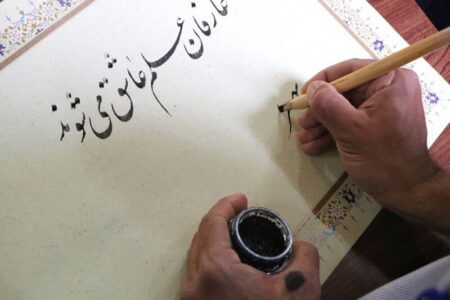 عارفان علم عاشق می شوند